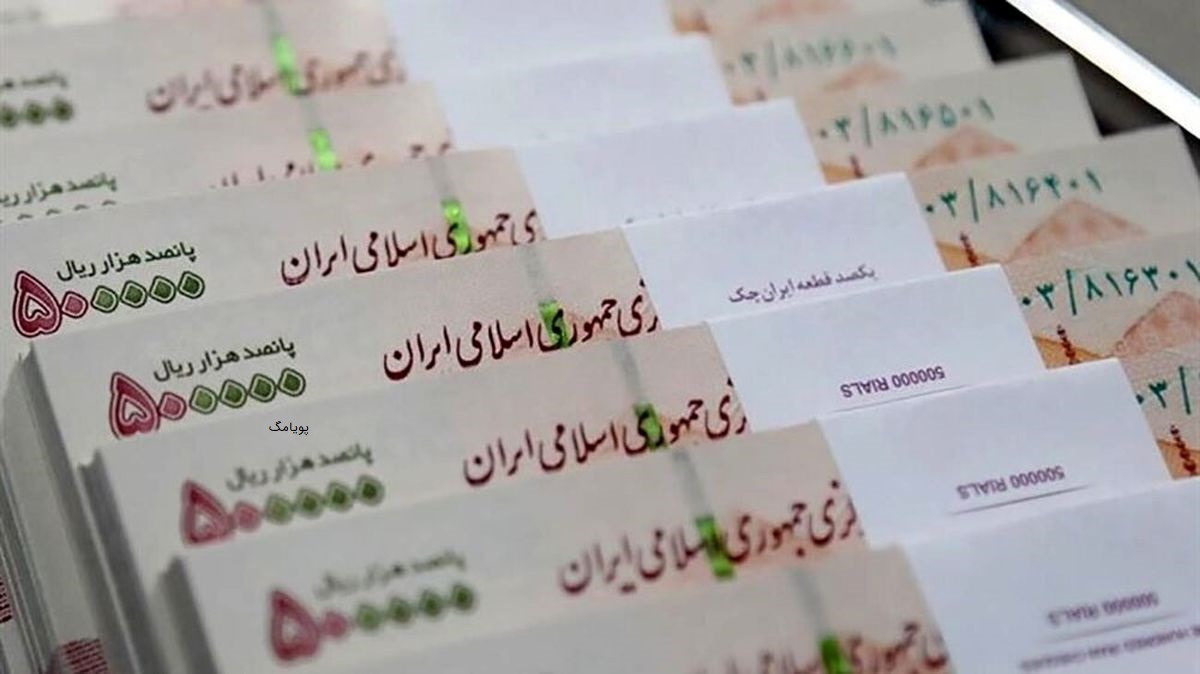 پانصد هزار ریال
جمهوری اسلامی ایران
۰۳/۸۱۶۶۰۱
پانصد هزار ریال
۰۳/۸۱۶۵۰۱
پانصد هزار ریال
۵۰۰۰۰۰
جمهوری اسلامی ایران
۰۳/۸۱۶۴۰۱
پانصد هزار ریال
۵۰۰۰۰۰
جمهوری اسلامی ایران
یکصد قطعه ایران چک
۰۳/۸۱۶۳۰۱
پویامگ
پانصد هزار ریال
۵۰۰۰۰۰
جمهوری اسلامی ایران
500000 RIALS
۰۳/
پانصد هزار ریال
۵۰۰۰۰۰
جمهوری اسلامی ایران
500000 RIALS
500000 RIALS